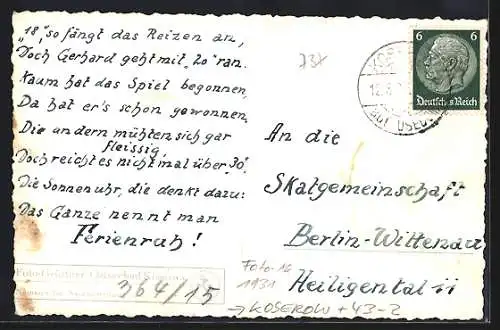 "18", so fängt das Reizen an,
Doch Gerhard geht mit "20" ran.
Kaum hat das Spiel begonnen,
Da hat er's schon gewonnen.
Die andern mühten sich gar
fleissig,
Doch reicht es nicht mal über "30".
Die Sonnenuhr, die denkt dazu:
Das Ganze nennt man
Ferienruh!
364/15
6 6
Deutsches Reich
An die
Skatgemeinschaft
Berlin-Wittenau
Heiligental 11
Foto-16
1931
→ KOSEROW + 43-2